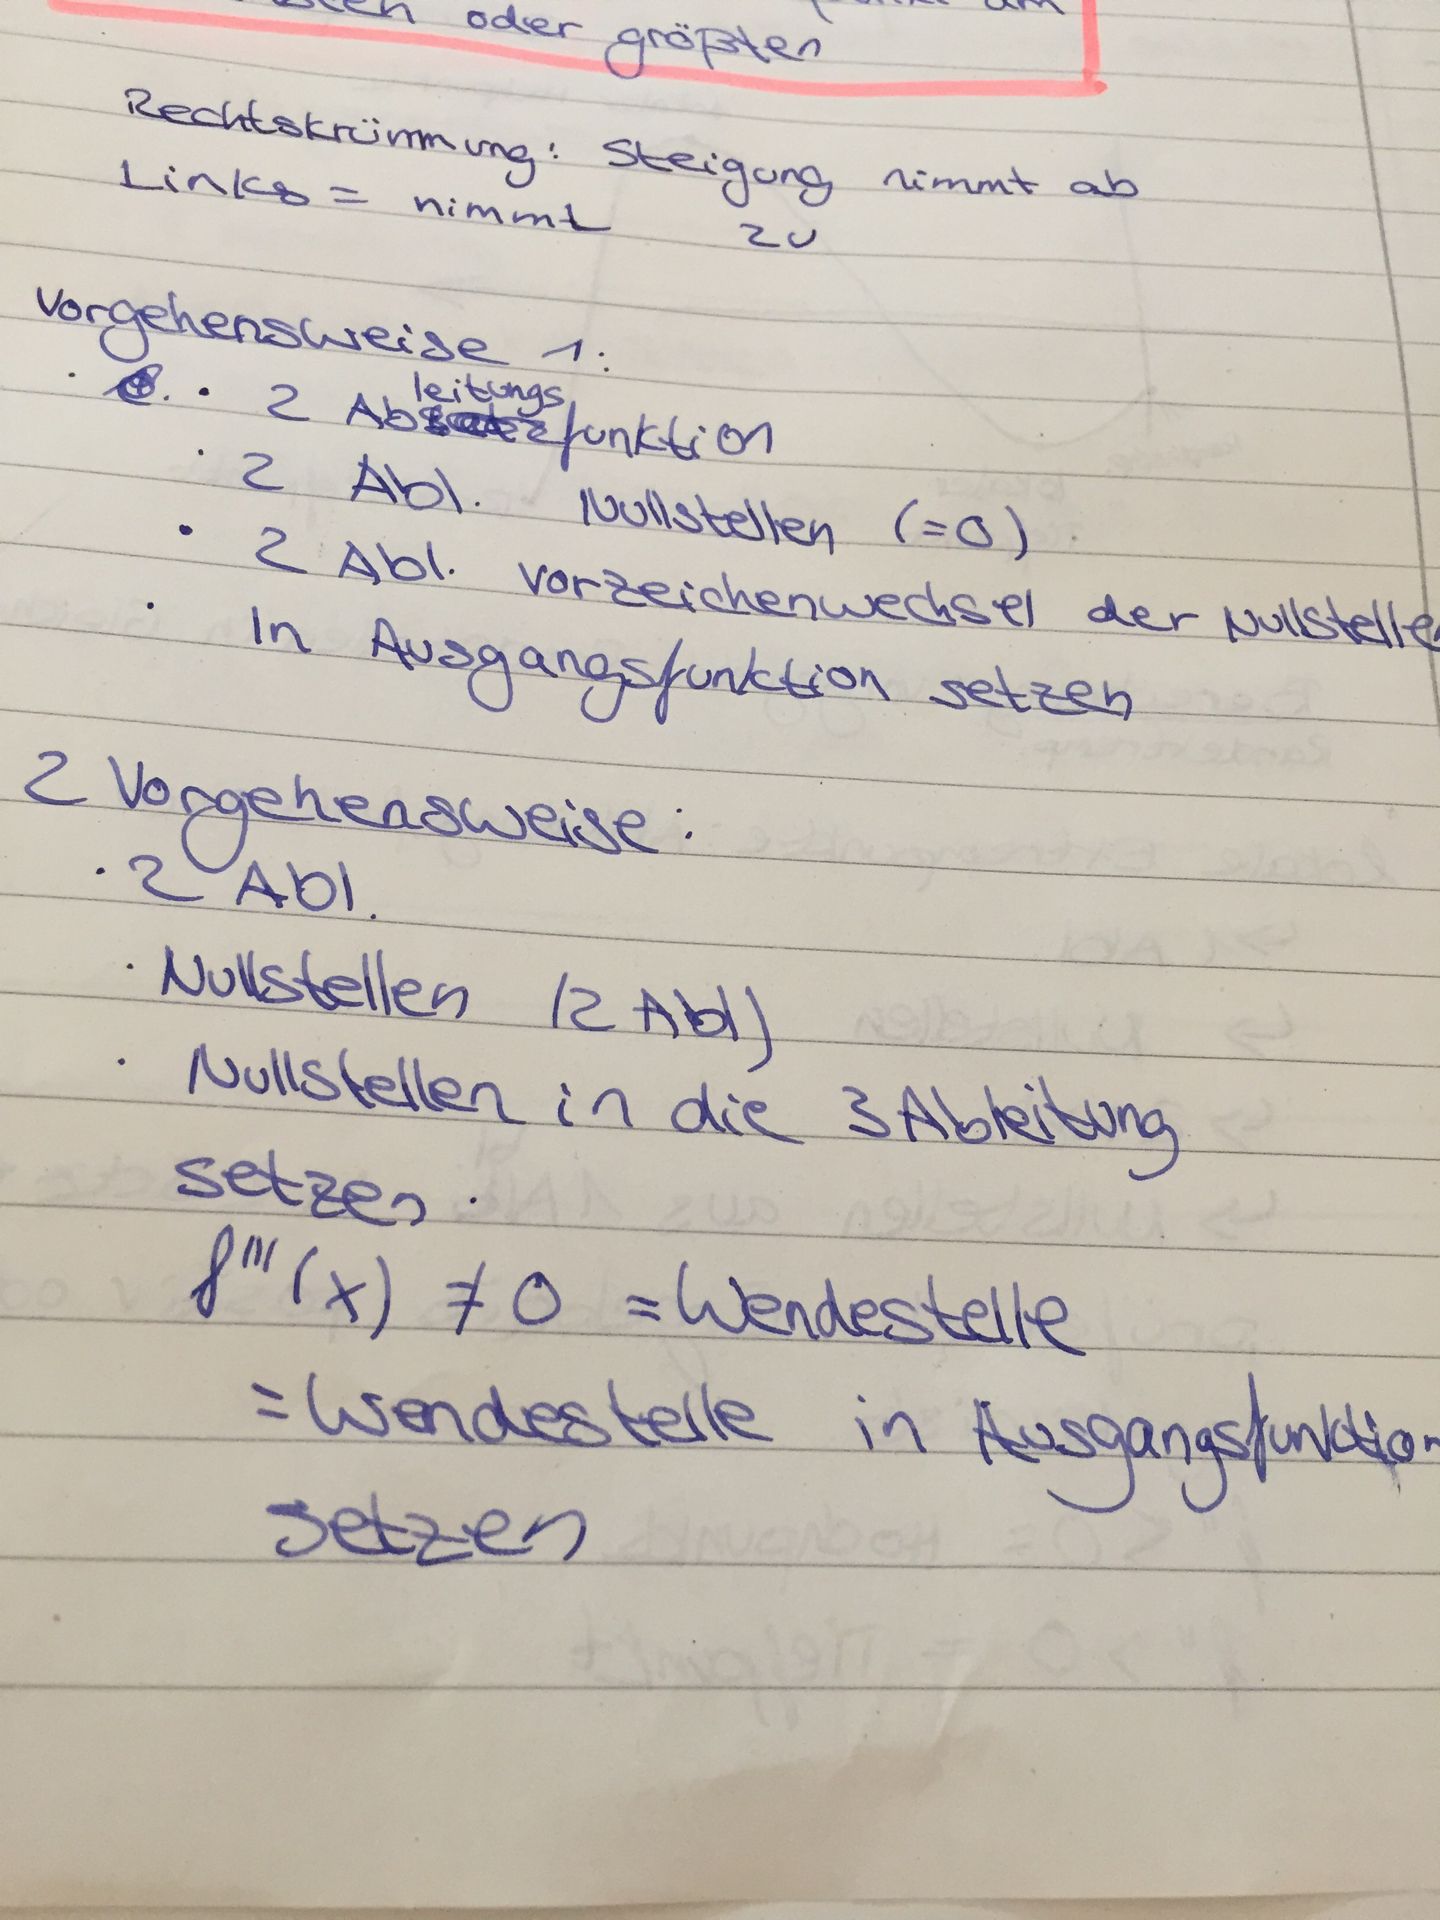 oder größten
Rechtskrümmung: Steigung nimmt ab
Links = nimmt zu
Vorgehensweise 1:
· · 2 Ableitungsfunktion
· 2 Abl. Nullstellen (=0)
· 2 Abl. Vorzeichenwechsel der Nullstelle
· In Ausgangsfunktion setzen
2 Vorgehensweise:
· 2 Abl.
· Nullstellen (2 Abl)
· Nullstellen in die 3 Ableitung
setzen.
f'''(x) ≠ 0 = Wendestelle
= Wendestelle in Ausgangsfunktion
setzen